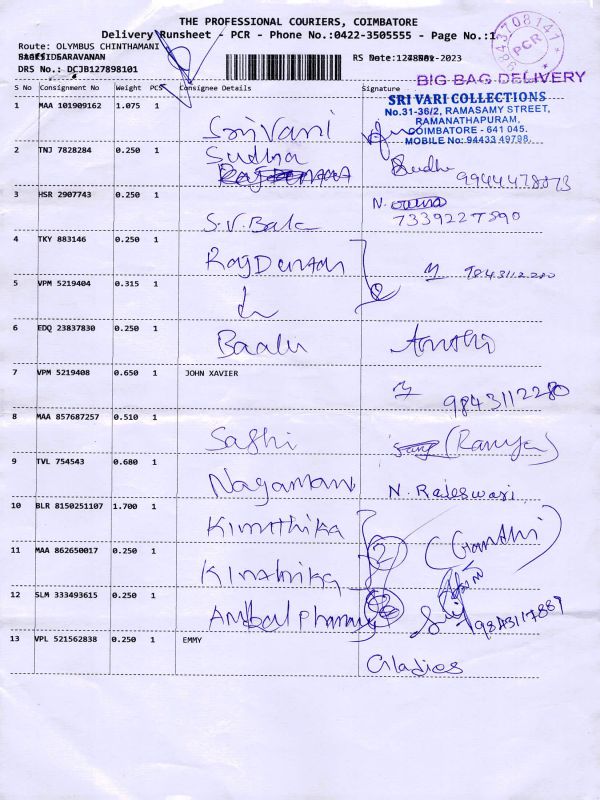 THE PROFESSIONAL COURIERS, COIMBATORE
Delivery Runsheet - PCR - Phone No.:0422-3505555 - Page No.:1
Route: OLYMBUS CHINTHAMANI
SARAVANAN
DRS No.: DCJB127898101
RS Date: -2023
9843708141
PCR
BIG BAG DELIVERY
SRI VARI COLLECTIONS
No.31-36/2, RAMASAMY STREET,
RAMANATHAPURAM,
COIMBATORE - 641 045.
MOBILE No: 94433 49798
S No Consignment No Weight PCS Consignee Details Signature
1 MAA 101909162 1.075 1 Srivari
2 TNJ 7828284 0.250 1 Sudha Sudha
9944478073
3 HSR 2907743 0.250 1 S.V.Bala N.
7339227590
4 TKY 883146 0.250 1 9843112280
5 VPM 5219404 0.315 1
6 EDQ 23837830 0.250 1 Baalu
7 VPM 5219408 0.650 1 JOHN XAVIER 9843112280
8 MAA 857687257 0.510 1 Sashi (Ramya)
9 TVL 754543 0.680 1 Nagamani N. Rajeswari
10 BLR 8150251107 1.700 1 Kiruthika (Gandhi)
11 MAA 862650017 0.250 1 Kiruthika
12 SLM 333493615 0.250 1 Ambal Pharmacy
13 VPL 521562838 0.250 1 EMMY Gladies